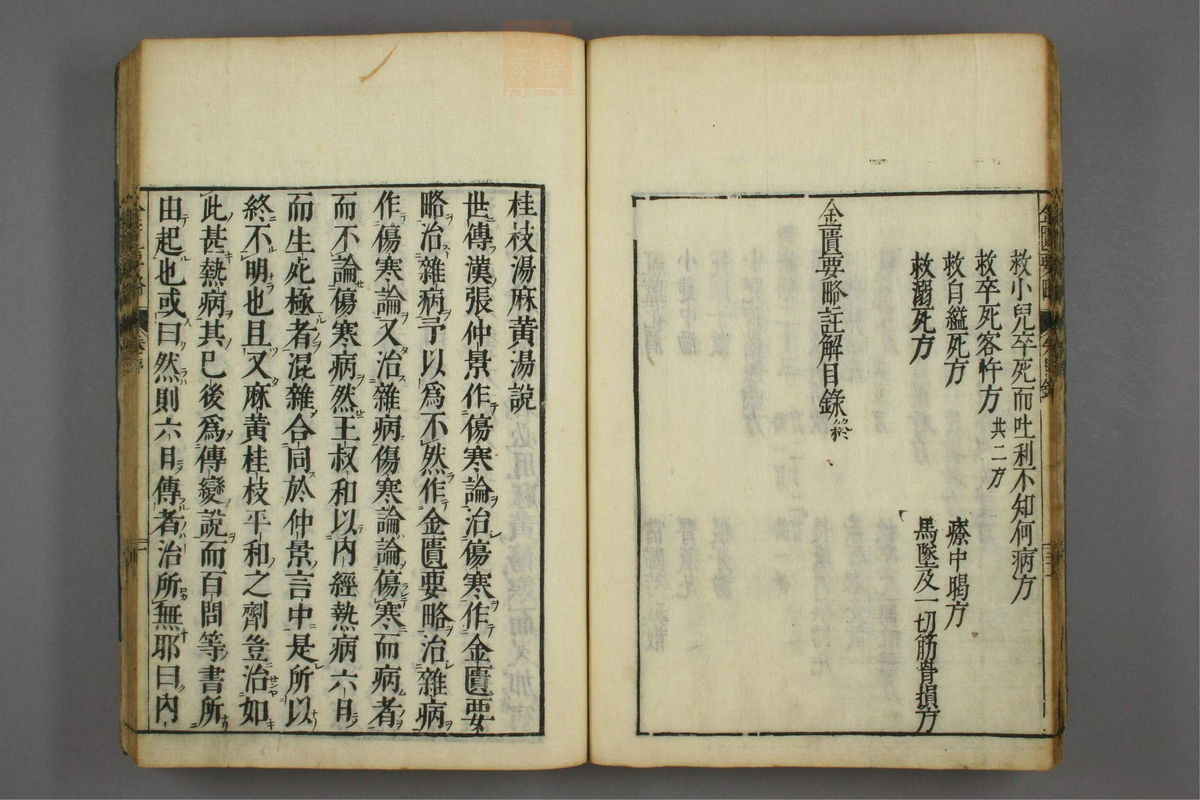 救小兒卒死而吐利不知何病方
救卒死客忤方 共二方
救自縊死方 療中暍方
救溺死方 馬墜及一切筋骨損方
金匱要略註解目錄終
桂枝湯麻黃湯說
世傳漢張仲景作傷寒論治傷寒作金匱要
略治雜病予以為不然作金匱要略治雜病
作傷寒論又治雜病傷寒論論傷寒而病者
而不論傷寒病然王叔和以內經熱病六日
而生死極者混雜合同於仲景言中是所以
終不明也且又麻黃桂枝平和之劑豈治如
此甚熱病其已後為傳變說而百問等書所
由起也或曰然則六日傳者治所無耶曰內